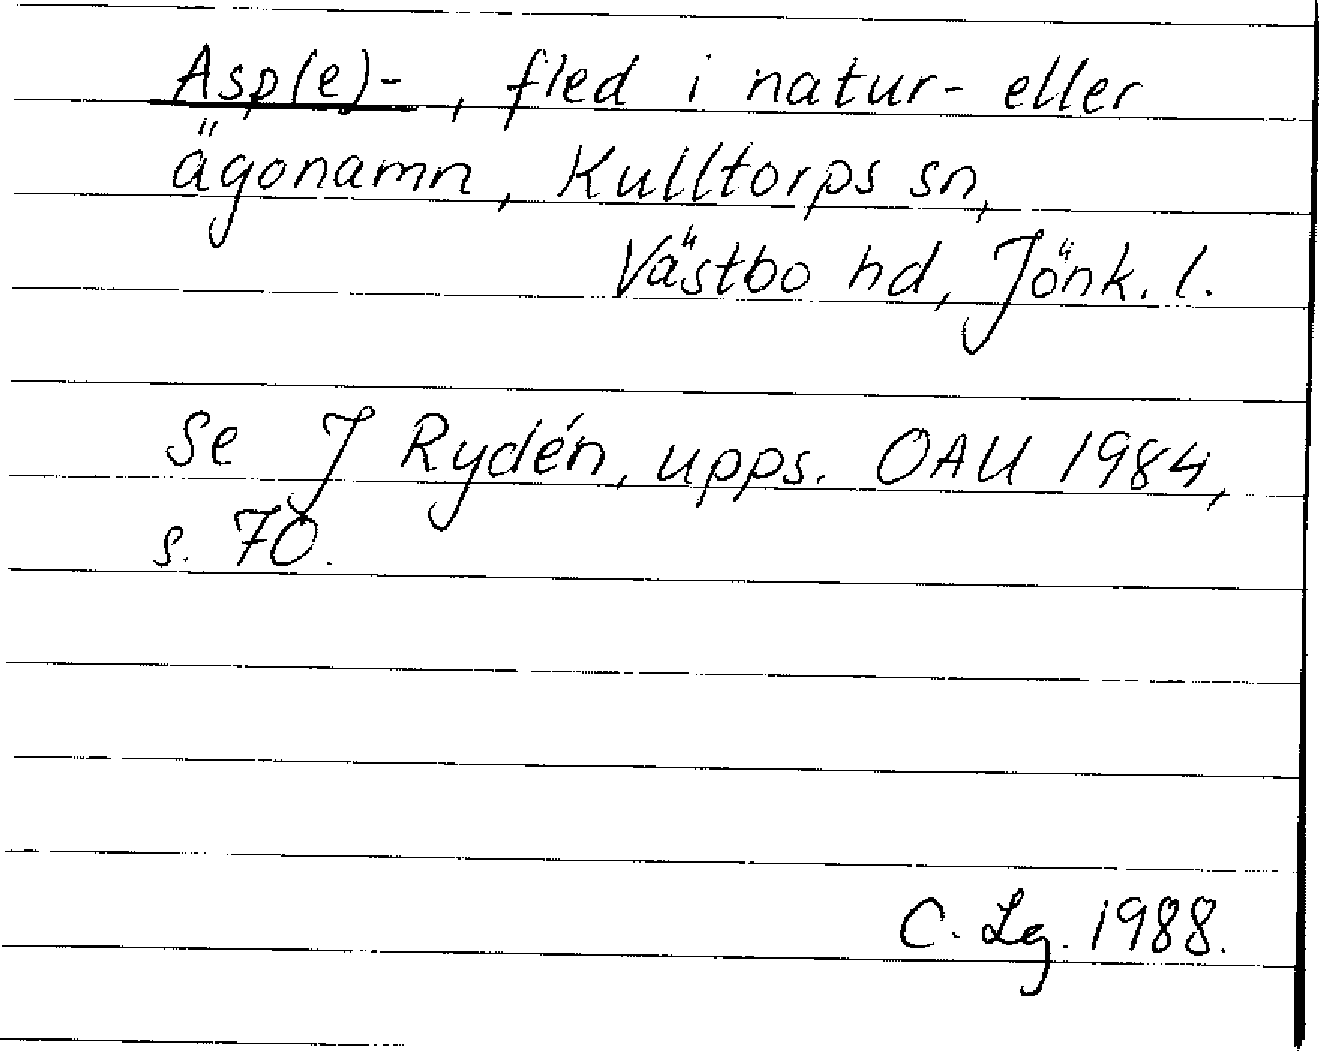 Asp(e)-, fled i natur- eller
ägonamn, Kulltorps sn,
Västbo hd, Jönk. l.
Se J Rydén, upps. OAU 1984,
s. 70.
C. Lg. 1988.